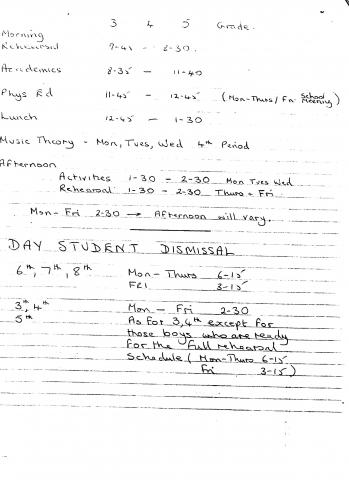 3 4 5 Grade.
Morning
Rehearsal 7-45 - 8-30.
Academics 8-35 — 11-40
Phys Ed 11-45 — 12-45 (Mon-Thurs/Fri School Meeting)
Lunch 12-45 — 1-30
Music Theory - Mon, Tues, Wed 4th Period
Afternoon
Activities 1-30 - 2-30 Mon Tues Wed
Rehearsal 1-30 - 2-30 Thurs + Fri
Mon-Fri 2-30 → Afternoon will vary.
DAY STUDENT DISMISSAL
6th, 7th, 8th Mon-Thurs 6-15
Fri 3-15
3rd, 4th Mon - Fri 2-30
5th As for 3, 4th except for
those boys who are ready
for the full rehearsal
schedule (Mon-Thurs 6-15
Fri 3-15)